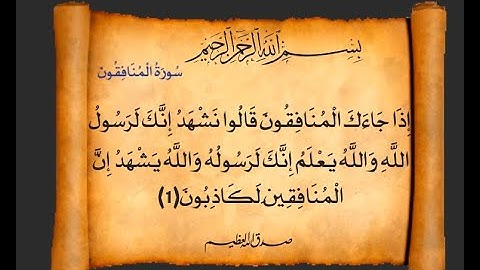 بِسْمِ اللَّهِ الرَّحْمَنِ الرَّحِيمِ
سُورَةُ الْمُنَافِقُونَ
إِذَا جَاءَكَ الْمُنَافِقُونَ قَالُوا نَشْهَدُ إِنَّكَ لَرَسُولُ
اللَّهِ وَاللَّهُ يَعْلَمُ إِنَّكَ لَرَسُولُهُ وَاللَّهُ يَشْهَدُ إِنَّ
الْمُنَافِقِينَ لَكَاذِبُونَ(1)
صدق الله العظيم